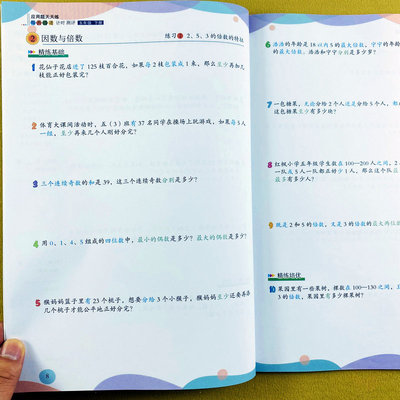 应用题天天练
计时 测评 五年级 下册
2 因数与倍数
练习1 2、5、3的倍数的特征
精练基础
1 花仙子花店进了125枝百合花，如果每2枝包装成1束，那么至少再加几
枝能正好包装完？
2 体育大课间活动时，五（3）班有37名同学在操场上玩游戏，如果每5人
一组，至少再来几个人刚好分完？
3 三个连续奇数的和是39，这三个连续奇数分别是多少？
4 用0、1、4、5组成的四位数中，最小的偶数是多少？最大的偶数是多少？
5 猴妈妈篮子里有23个桃子，想要分给3个小猴子，猴妈妈至少还要再添
几个桃子才能公平地正好分完？
8
6 浩浩的年龄是18以内5的最大倍数，宁宁的年龄
浩浩和宁宁分别是多少岁？
7 一包糖果，无论分给2个人还是分给5个人，都
这包糖果至少有多少块？
8 红枫小学五年级学生数在100—200人之间，2
一队或5人一队都正好少1人，那么这个队
最多有多少人？
9 既是2和5的倍数，又是3的倍数的最大两位
精练培优
10 果园里有一些果树，棵数在100—130之间，
3的倍数，果园里有多少棵果树？